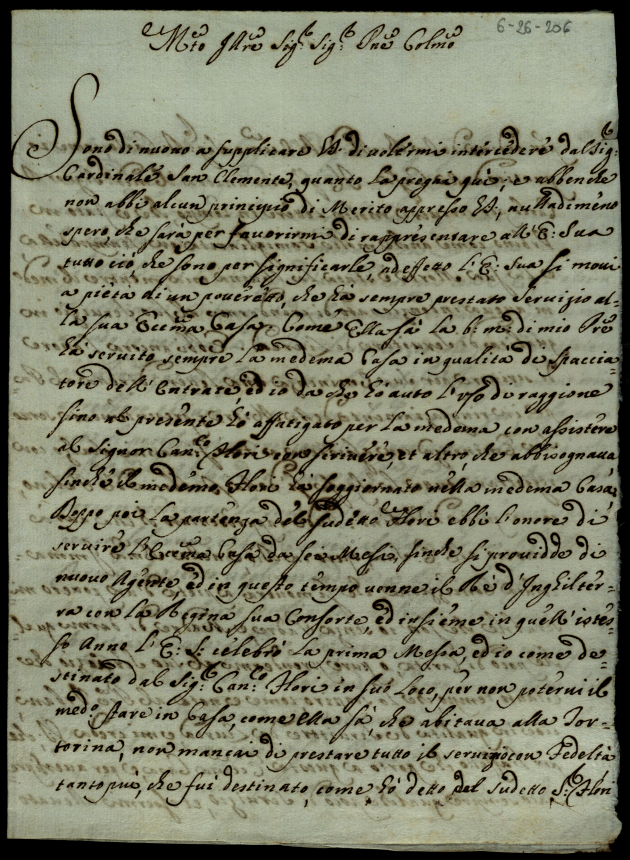 6-26-206
Mto Illre Sigr Sigr Pne Colmo
Sono di nuouo a supplicare VS di uolermi intercedere dal Sigr
Cardinale San Clemente, quanto la prega qui, e abbenche
non abbi alcun principio di Merito appresso VS, nulladimeno
spero, che sarà per fauorirmi di rappresentare all' E: Sua
tutto ciò, che sono per significarle, ad effetto l' E: Sua si moui
a pietà di un pouerello, che hà sempre prestato seruizio al-
la sua Eccma Casa. Come Ella sà la b: m: di mio Pre
hà seruito sempre la medema Casa in qualità di spaccia-
tore dell' Entrate, ed io da che hò auto l'uso di raggione
sino al presente hò affatigato per la medema con assistere
al Signor Canco Flori con scriuere, et altro, che abbisognaua
sinche il medemo Flori hà soggiornato nella medema Casa.
Doppo poi la partenza del sudetto Flori ebbi l'onore di
seruire l'Eccma Casa da sei Mesi, sinche si prouidde di
nuouo Agente, ed in questo tempo uenne il Rè d'Inghilter-
ra con la Regina sua Consorte, ed insieme in quell'istes-
so Anno l' E: S: celebrò la prima Messa, ed io come de-
stinato dal Sigr Canco Flori in suo loco, per non poterui il
medo stare in Casa, come ella sà, che abitaua alla Tor-
torina, non mancai di prestare tutto il seruizio con Fedeltà
tanto più, che fui destinato, come hò detto del sudetto Sr Flori